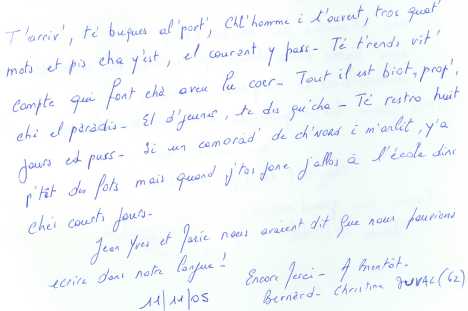 T'arriv', té buques al' port', Chl'homme i t'ouvert, tros quat'
mots et pis cha y'est, el courant y pass - Té t'rends vit'
compte qui font cha aveu leu coer - Tout il est biot, prop',
ché el paradis - El d'jeuner, te dis qu'cha - Té restro huit
jours ed puss - Si un camarad' de ch'Nord i m'arlit, y'a
p't'êt des fots mais quand j'tos jone j'allos à l'école dins
chés courts jours -
Jean Yves et Marie nous avaient dit que nous pouvions
ecrire dans notre langue !
Encore Merci - A bientôt -
11/11/05 Bernard - Christine DUVAL (62)